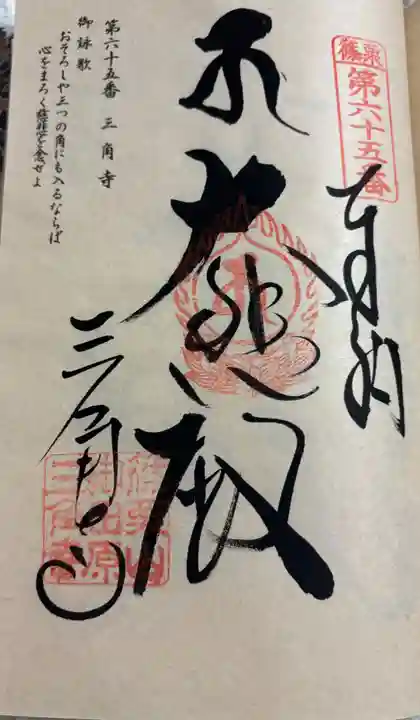 篠栗
第六十五番
奉納
大悲殿
三角寺
三角寺
第六十五番 三角寺
御詠歌
おそろしや三つの角にも入るならば
心をまろく慈悲を念ぜよ